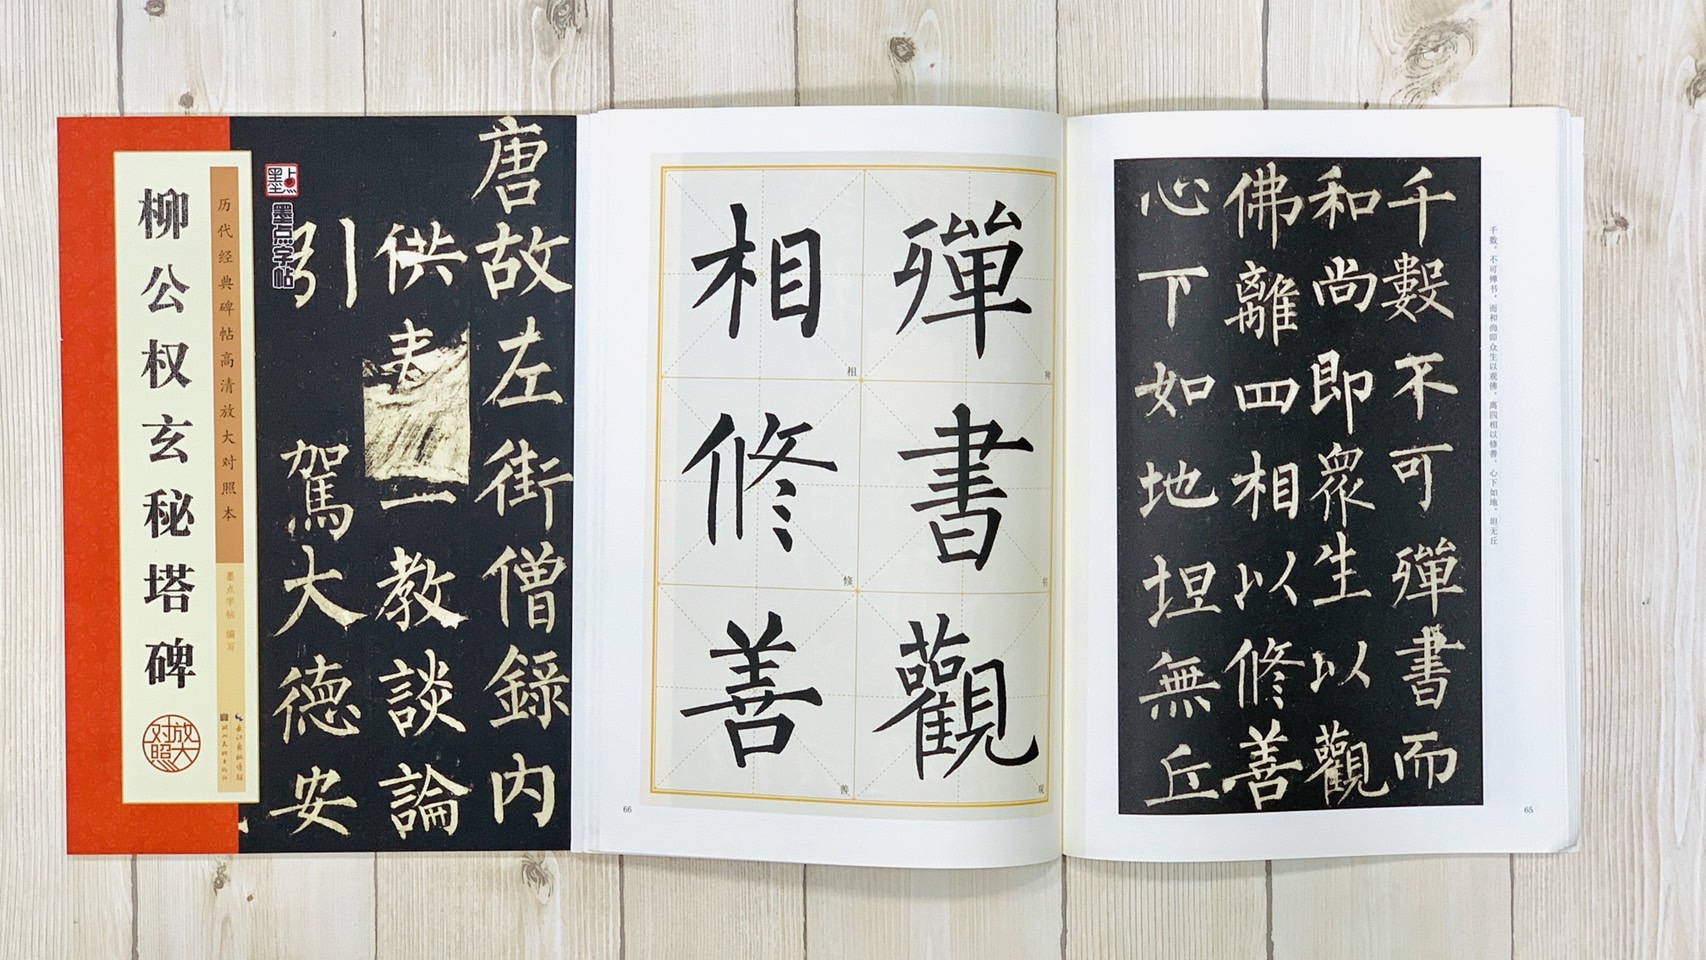 柳公权玄秘塔碑
历代经典碑帖高清放大对照本
墨点字帖 编写
放大对照
墨点字帖
唐故左街僧錄内
供奉一教談論
引駕大德安
千數不可殫書而
和尚即眾生以觀
佛離四相以修善
心下如地坦無丘
千数，不可殚书，而和尚即众生以观佛，离四相以修善，心下如地，坦无丘
65
殫書觀
殚
书
观
相修善
相
修
善
66